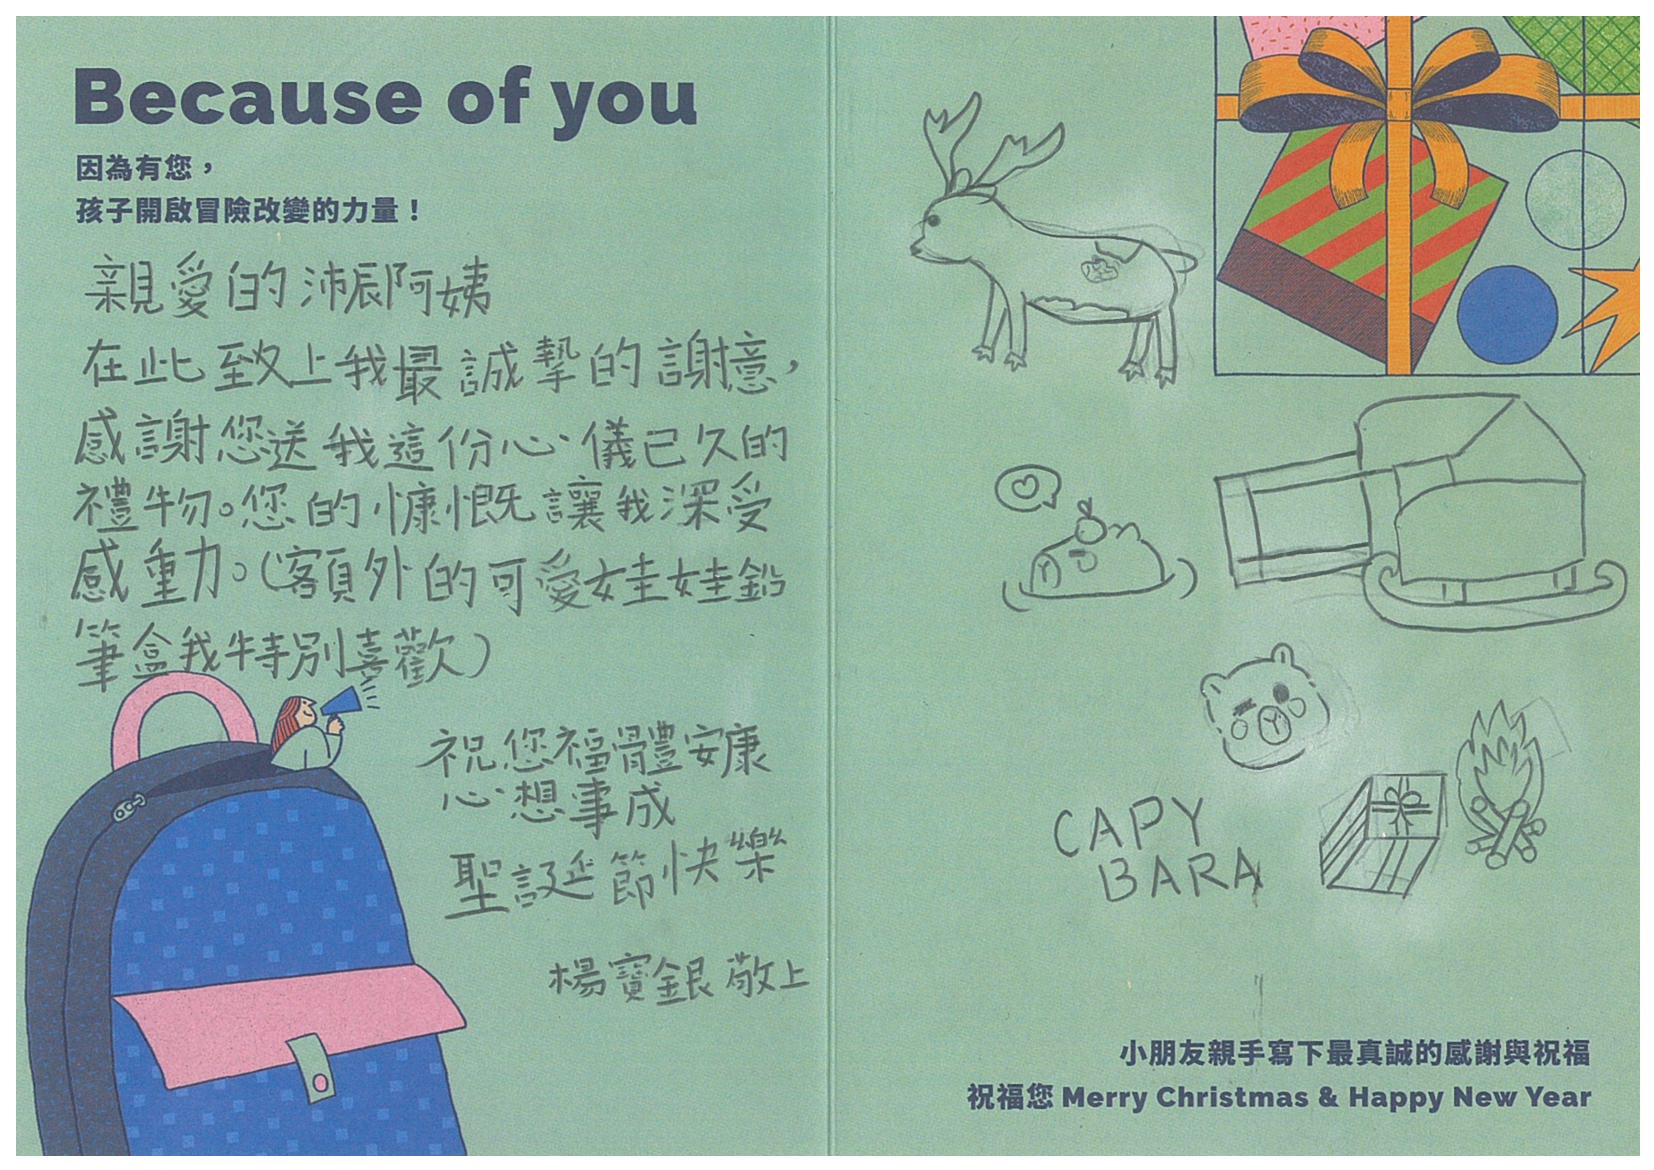 Because of you
因為有您，
孩子開啟冒險改變的力量！
親愛的沛辰阿姨
在此致上我最誠摯的謝意，
感謝您送我這份心儀已久的
禮物。您的慷慨讓我深受
感動。(額外的可愛娃娃鉛
筆盒我特別喜歡)
祝您福體安康
心想事成
聖誕節快樂
楊寶銀敬上
CAPY
BARA
小朋友親手寫下最真誠的感謝與祝福
祝福您 Merry Christmas & Happy New Year